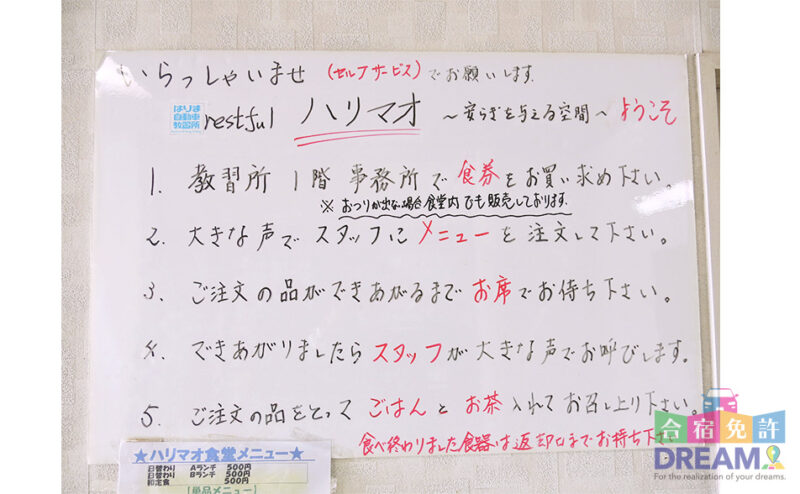 いらっしゃいませ (セルフサービス)でお願いします。
はりま
自動車
教習所
restful ハリマオ ～安らぎを与える空間～ ようこそ
1. 教習所 1階 事務所で食券をお買い求め下さい。
※ おつりが出ない場合食堂内でも販売しております。
2. 大きな声でスタッフにメニューを注文して下さい。
3. ご注文の品ができあがるまでお席でお待ち下さい。
4. できあがりましたらスタッフが大きな声でお呼びします。
5. ご注文の品をとって ごはんとお茶入れてお召し上り下さい。
食べ終わりました食器は返却口までお持ち下さい
★ハリマオ食堂メニュー★
日替わり Aランチ 500円
日替わり Bランチ 500円
和定食 500円
【単品メニュー】
合宿免許
DREAM
For the realization of your dreams.